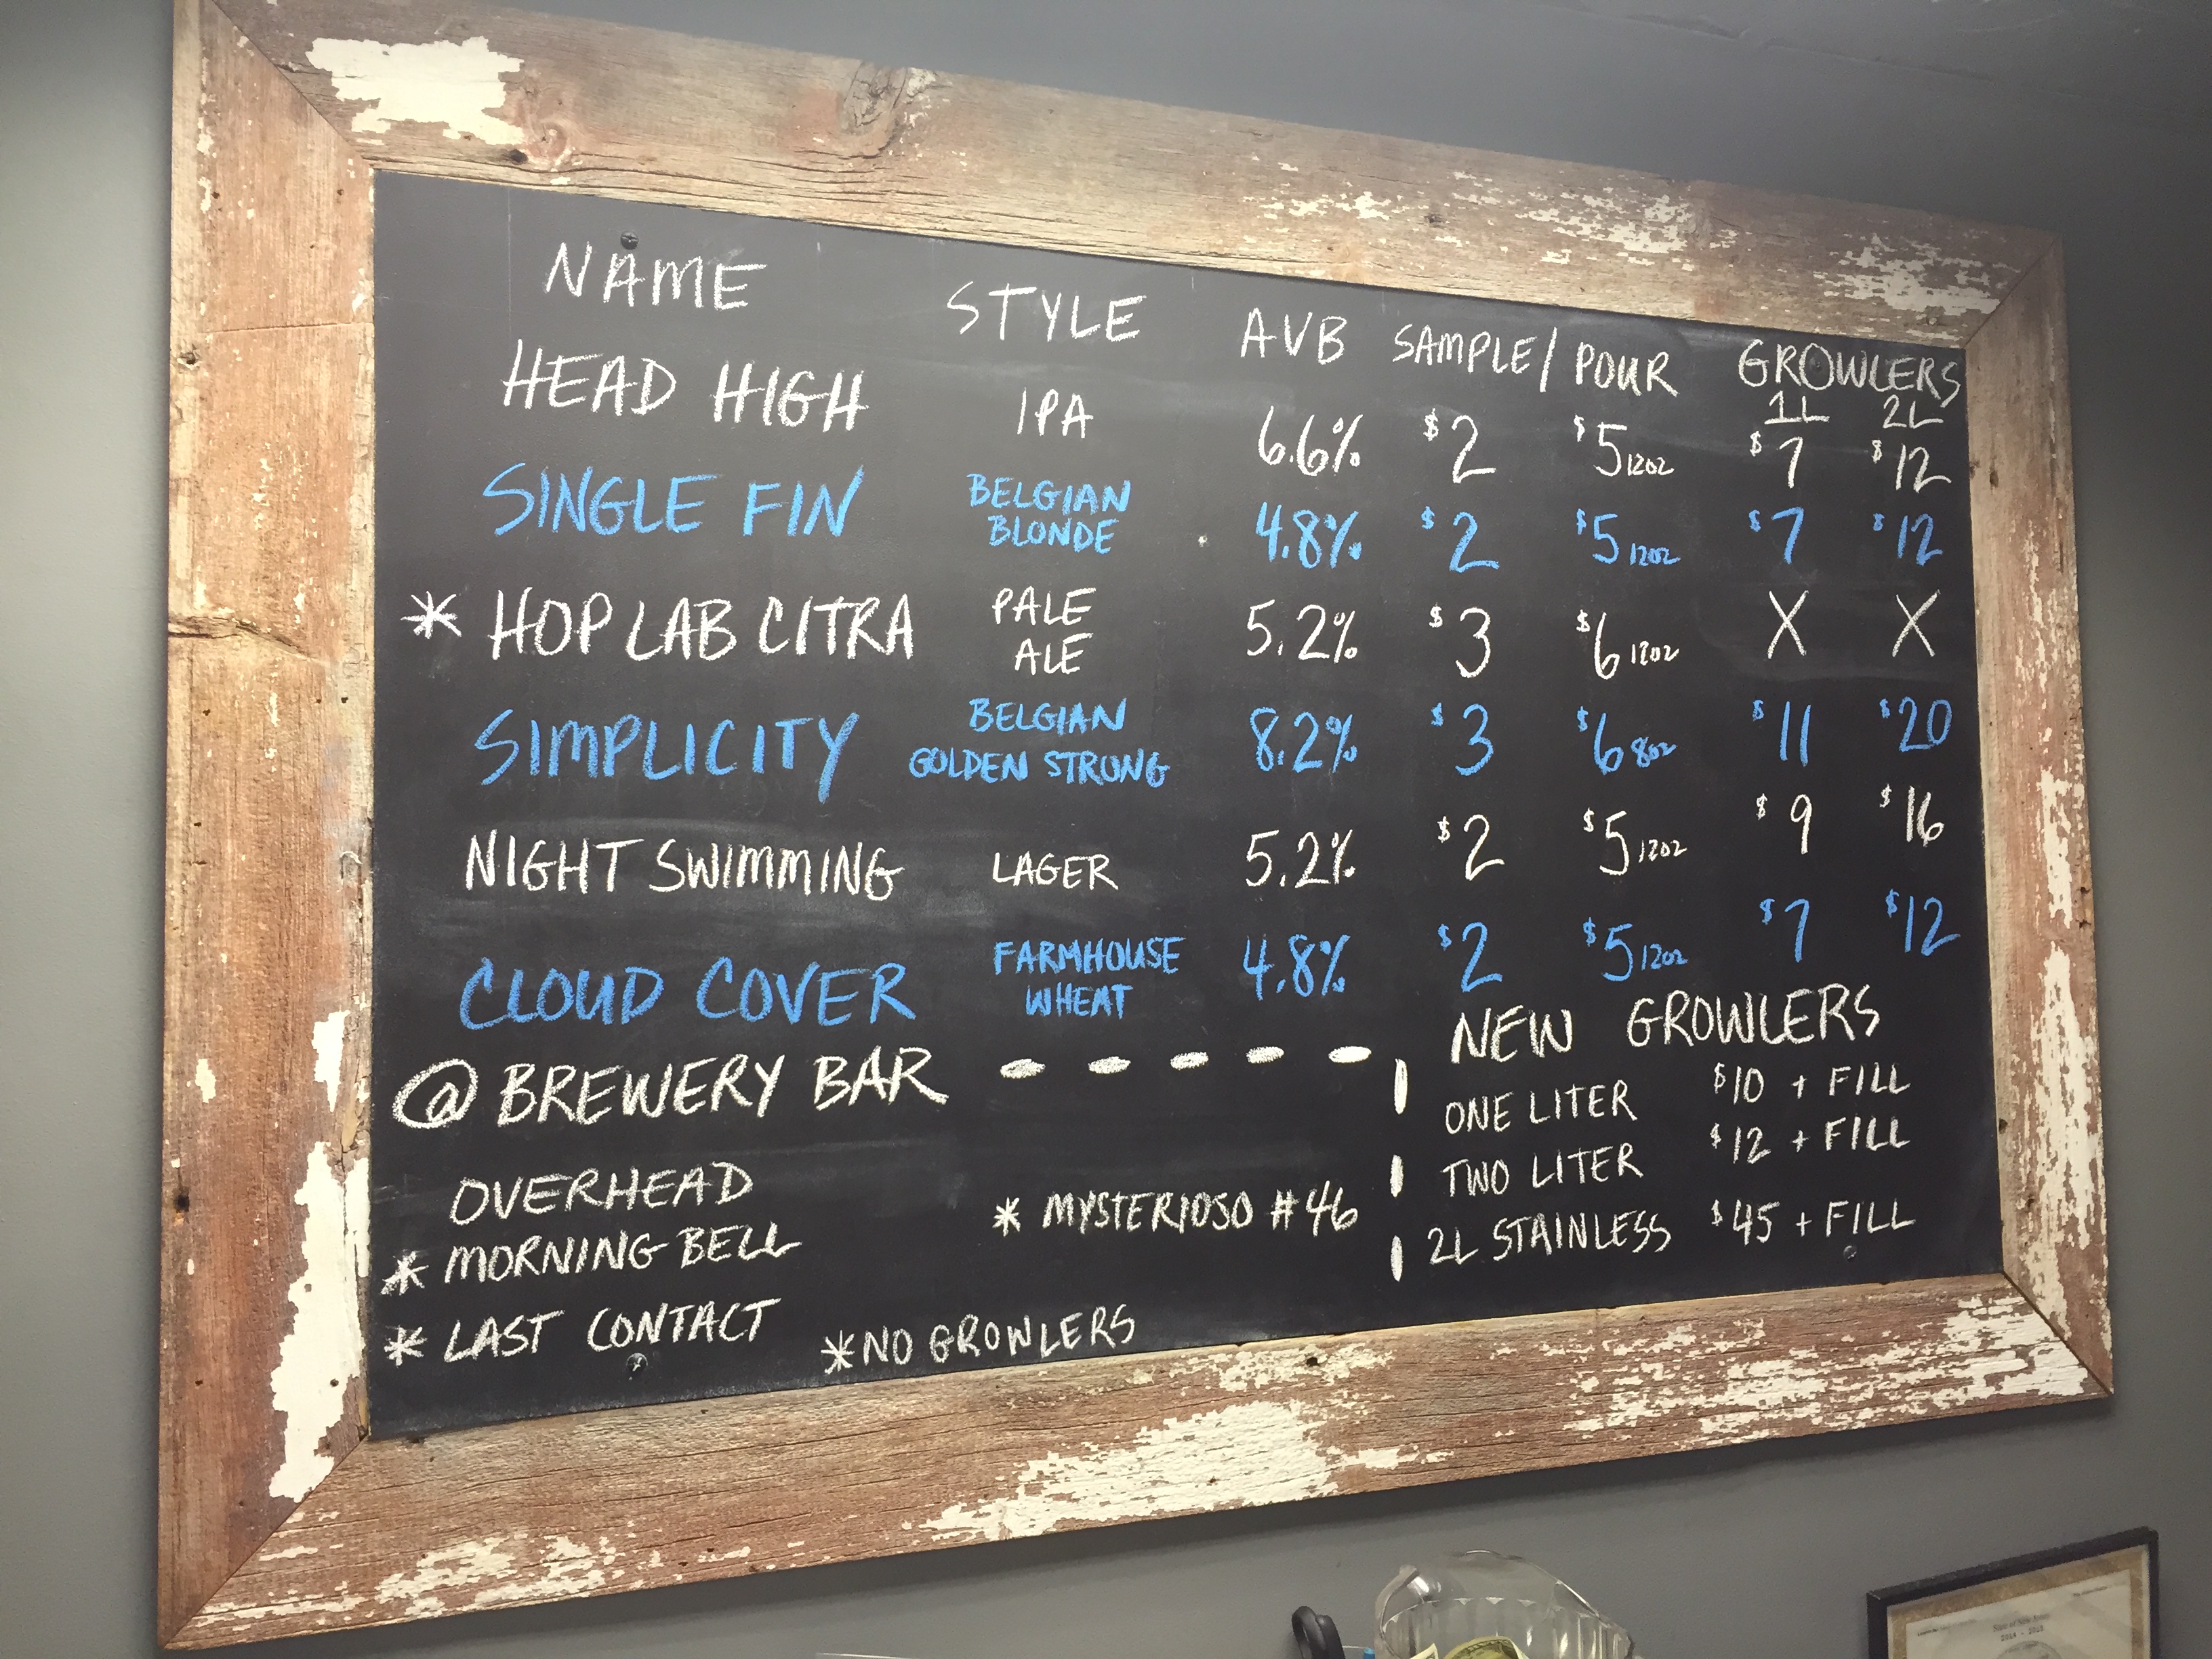 NAME STYLE AVB SAMPLE/ POUR GROWLERS
1L 2L
HEAD HIGH IPA 6.6% $2 $5 12oz $7 $12
SINGLE FIN BELGIAN BLONDE 4.8% $2 $5 12oz $7 $12
* HOP LAB CITRA PALE ALE 5.2% $3 $6 12oz X X
SIMPLICITY BELGIAN GOLDEN STRONG 8.2% $3 $6 8oz $11 $20
NIGHT SWIMMING LAGER 5.2% $2 $5 12oz $9 $16
CLOUD COVER FARMHOUSE WHEAT 4.8% $2 $5 12oz $7 $12
@ BREWERY BAR
OVERHEAD
* MORNING BELL
* LAST CONTACT
* MYSTERIOSO #46
*NO GROWLERS
NEW GROWLERS
ONE LITER $10 + FILL
TWO LITER $12 + FILL
2L STAINLESS $45 + FILL
State of New Jersey
2014 - 2015